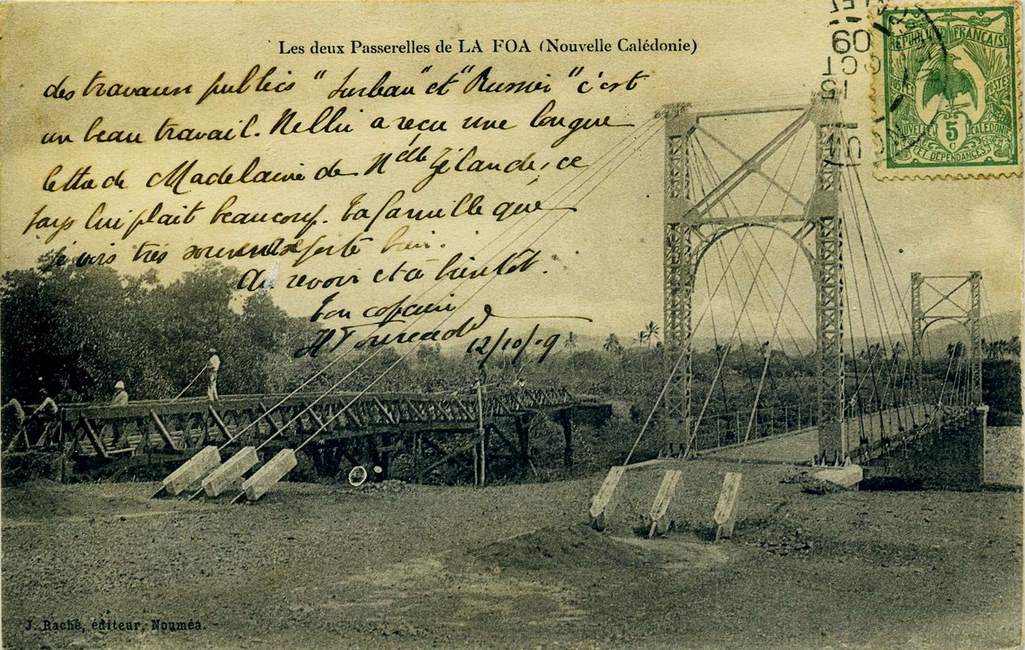 Les deux Passerelles de LA FOA (Nouvelle Calédonie)
des travaux publics "Surbau" et "Russier" c'est
un beau travail. Nellie a reçu une longue
lettre de Madelaine de Nlle Zélande, ce
pays lui plait beaucoup. Ta famille que
je vois très souvent se porte bien.
Au revoir et à bientôt.
Ton copain
12/10/09
REPUBLIQUE FRANÇAISE
POSTES
5
c
NOUVELLE CALEDONIE
ET DEPENDANCES
15
OCT
09
J. Raché, éditeur, Nouméa.